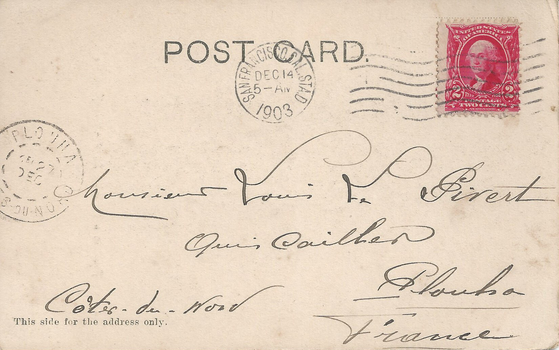 POST CARD.
SAN FRANCISCO, CAL. STA. D
DEC 14
5-AM
1903
2 2
POSTAGE
TWO CENTS
PLOUHA
DEC
DU-NORD
Monsieur Louis Le Pivert
Plouha
Côtes-du-Nord
This side for the address only.
France